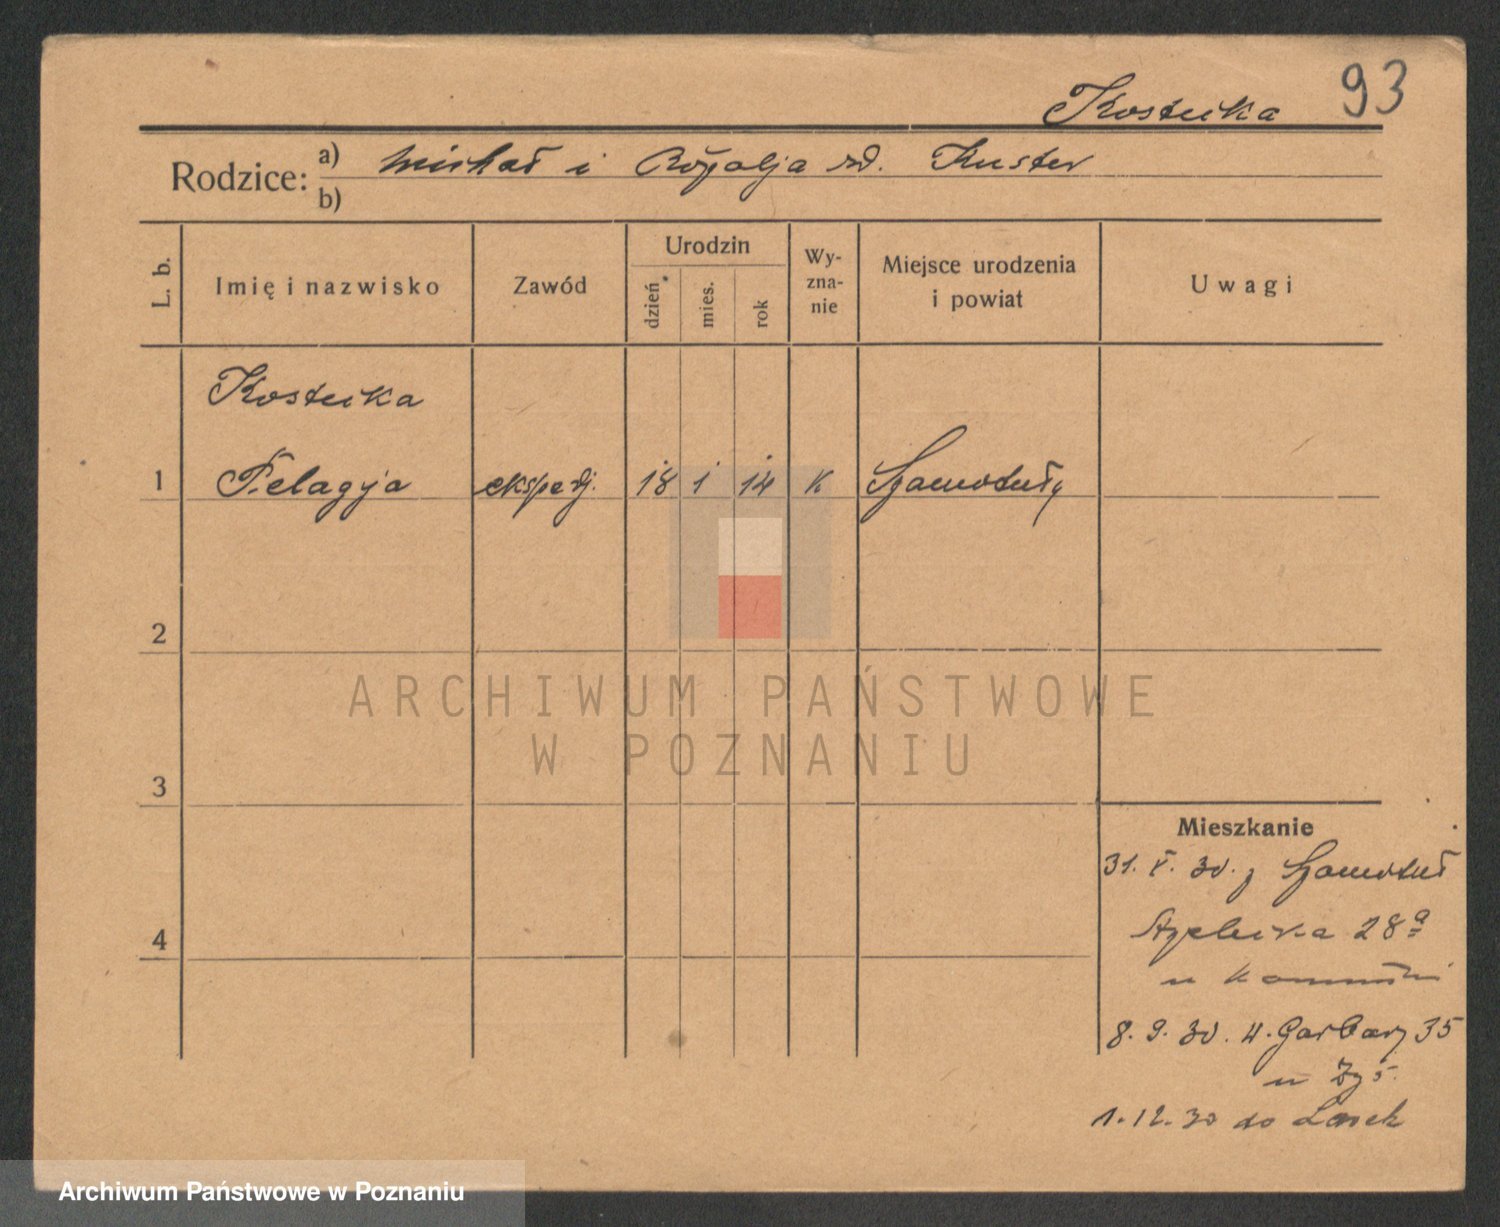 93
Kostecka
Rodzice: a) Michał i Rozalja zd. Kuster
b)
L. b. Imię i nazwisko Zawód Urodzin dzień mies. rok Wy-zna-nie Miejsce urodzenia i powiat Uwagi
Kostecka
1 Pelagja ekspedj. 18 1 14 K Szamotuły
2
ARCHIWUM PAŃSTWOWE
W POZNANIU
3
Mieszkanie
31. V. 30. z Szamotuł
28a
4
u
8. 9. 30. 4. Garbary 35
u
1. 12. 30 do
Archiwum Państwowe w Poznaniu